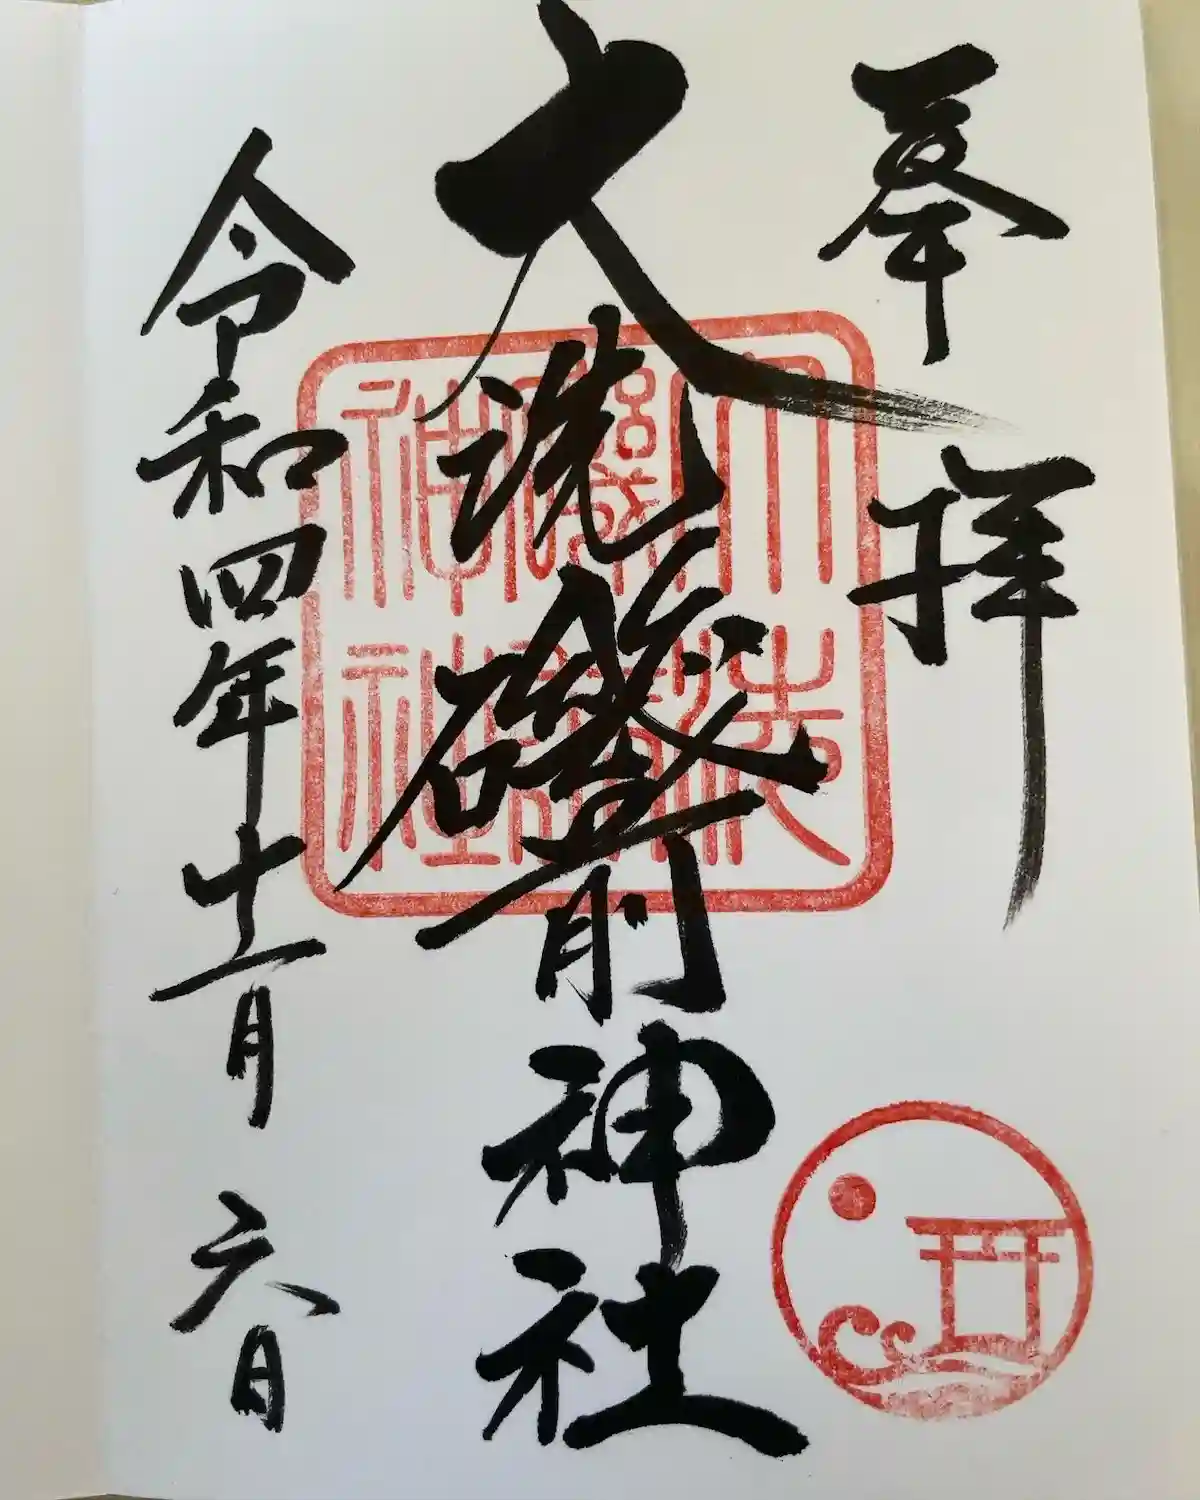 奉拝
大洗磯前神社
大洗磯前神社
令和四年十一月六日